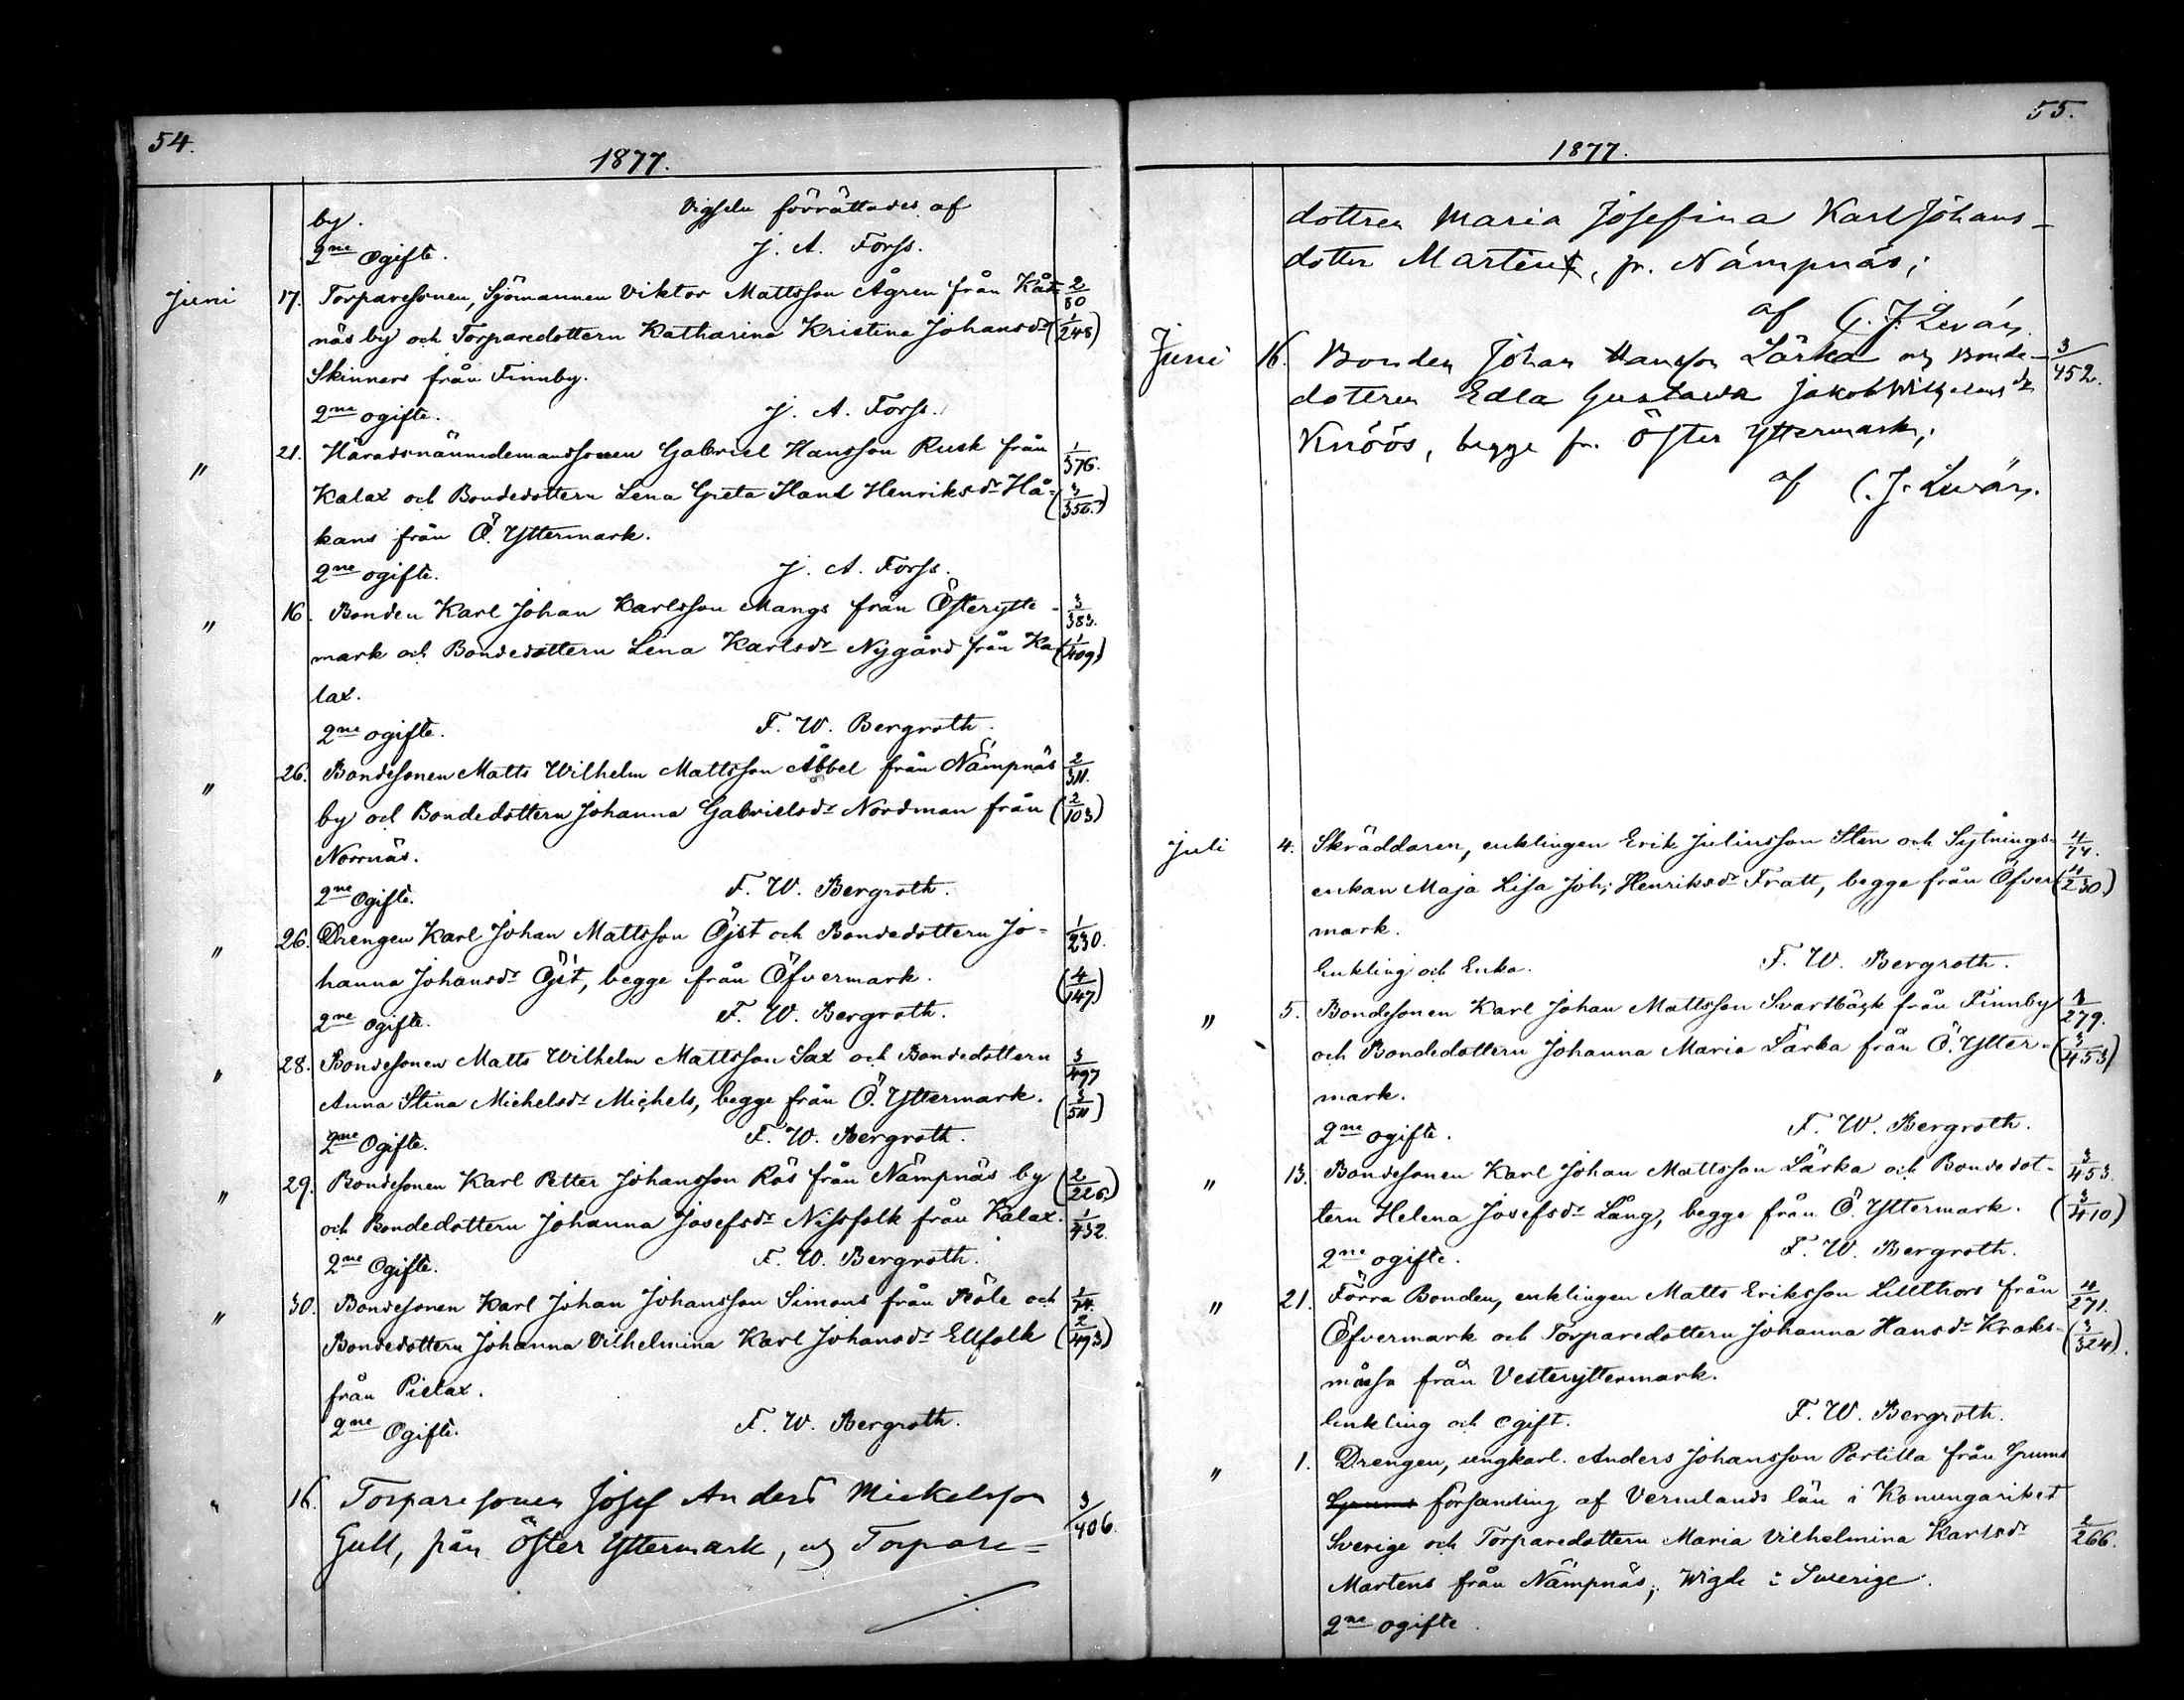 54.
1877.
by. Vigseln förrättades af
2ne Ogifte. J. A. Forss.
Juni 17. Torparesonen, Sjömannen Viktor Mattsson Ågren från Kåt- 2/80
näs by och Torparedottern Katharina Kristina Johansdr (1/248)
Skinnars från Finnby.
2ne ogifte. J. A. Forss.
" 21. Häradsnämndemanssonen Gabriel Hansson Rusk från 1/376.
Kalax och Bondedottern Lena Greta Hans Henriksdr Hå- (3/356.)
kans från Ö. Yttermark.
2ne ogifte. J. A. Forss.
" 16. Bonden Karl Johan Karlsson Mangs från Österytte- 3/383.
mark och Bondedottern Lena Karlsdr Nygård från Ka- (1/409)
lax.
2ne ogifte. F. W. Bergroth.
" 26. Bondesonen Matts Wilhelm Mattsson Åbbel från Nämpnäs 2/311.
by och Bondedottern Johanna Gabrielsdr Nordman från (2/103)
Norrnäs.
2ne Ogifte. F. W. Bergroth.
" 26. Drengen Karl Johan Mattsson Öjst och Bondedottern Jo- 1/230.
hanna Johansdr Öjst, begge från Öfvermark. (4/147)
2ne ogifte. F. W. Bergroth.
" 28. Bondesonen Matts Wilhelm Mattsson Sax och Bondedottern 3/497
Anna Stina Michelsdr Michels, begge från Ö. Yttermark. (3/511)
2ne Ogifte. F. W. Bergroth.
" 29. Bondesonen Karl Petter Johansson Rös från Nämpnäs by (2/226)
och Bondedottern Johanna Josefsdr Nissfolk från Kalax. 1/432.
2ne Ogifte. F. W. Bergroth.
" 30. Bondesonen Karl Johan Johansson Simons från Böle och 1/74.
Bondedottern Johanna Vilhelmina Karl Johansdr Ellfolk (2/493)
från Pielax.
2ne Ogifte. F. W. Bergroth.
" 16. Torparesonen Josef Anders Mickelsson 3/406.
Gull, från Öster Yttermark, och Torpare-
55.
1877.
dottren Maria Josefina Karl Johans-
dotter Martens, fr. Nämpnäs;
af C. J. Levän.
Juni 16. Bonden Johan Hansson Lärka och Bonde- 3/452.
dottren Edla Gustava Jakob Wilhelmsdr
Knöös, begge fr. Öster Yttermark;
af C. J. Levän.
Juli 4. Skräddaren, enklingen Erik Juliusson Sten och Sytnings- 4/74.
enkan Maja Lisa Joh: Henriksdr Fratt, begge från Öfver- (4/230)
mark.
Enkling och Enka. F. W. Bergroth.
" 5. Bondesonen Karl Johan Mattsson Svartbäck från Finnby 1/279.
och Bondedottern Johanna Maria Lärka från Ö. Ytter- (3/453)
mark.
2ne ogifte. F. W. Bergroth.
" 13. Bondesonen Karl Johan Mattsson Lärka och Bondedot- 3/453.
tern Helena Josefsdr Lång, begge från Ö. Yttermark. (3/410)
2ne ogifte. F. W. Bergroth.
" 21. Förra Bonden, enklingen Matts Eriksson Lillthors från 4/271.
Öfvermark och Torparedottern Johanna Hansdr Kraks- (3/324).
måssa från Vesteryttermark.
Enkling och ogift. F. W. Bergroth.
" 1. Drengen, ungkarl. Anders Johansson Portilla från Grums
Grums församling af Vermlands län i Konungariket
Sverige och Torparedottern Maria Vilhelmina Karlsdr 2/266.
Martens från Nämpnäs; Wigde i Sverige.
2ne ogifte.